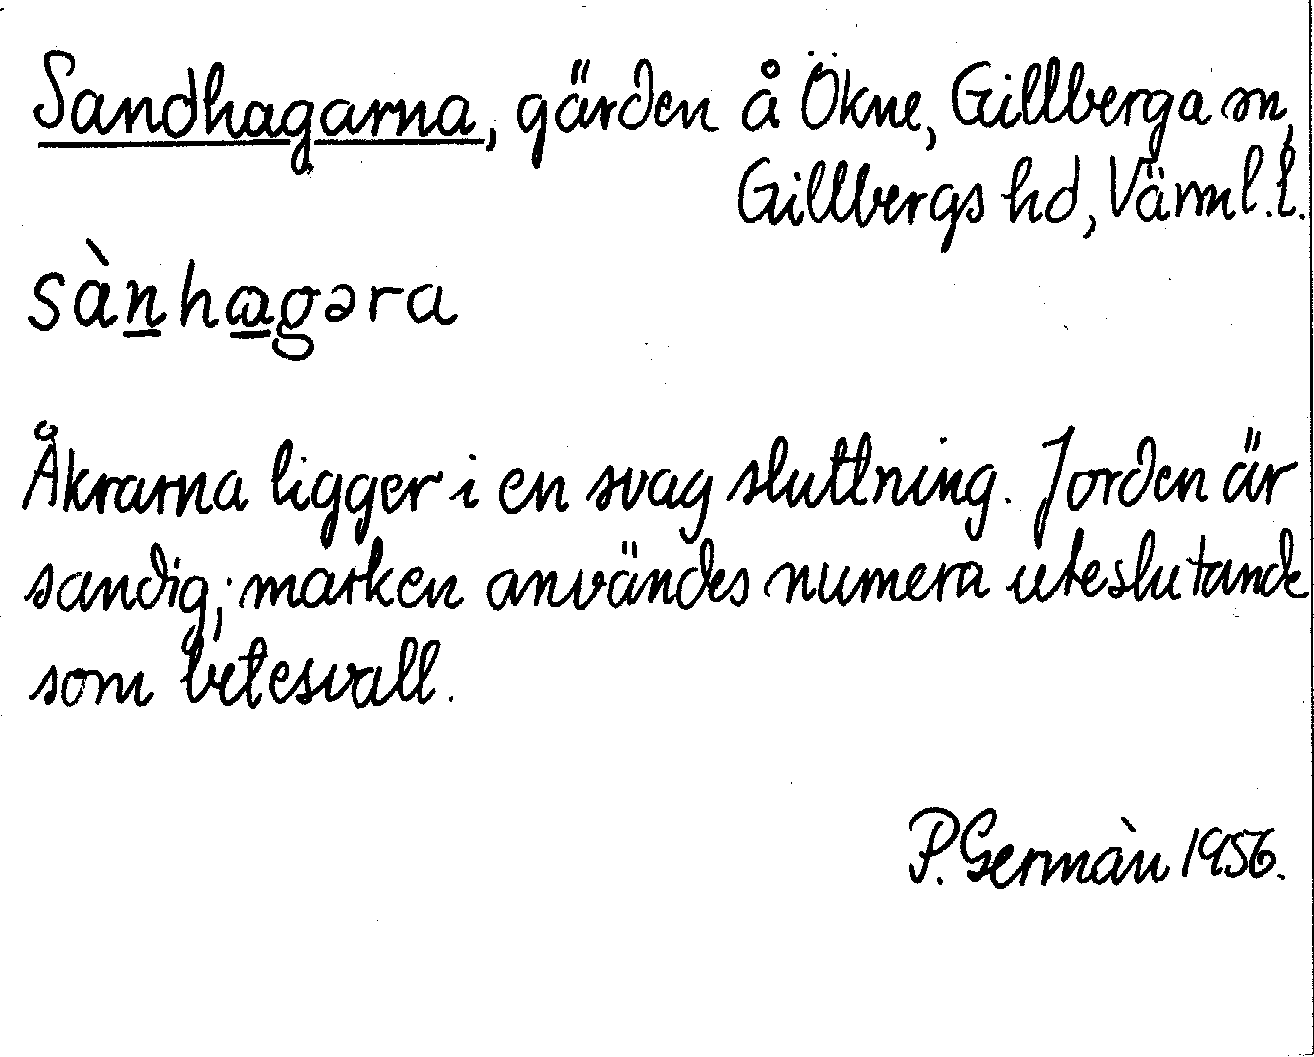 Sandhagarna, gärden å Ökne, Gillberga sn,
Gillbergs hd, Värml. l.
sànhagəra
Åkrarna ligger i en svag sluttning. Jorden är
sandig; marken användes numera uteslutande
som betesvall.
P. Germàn 1956.